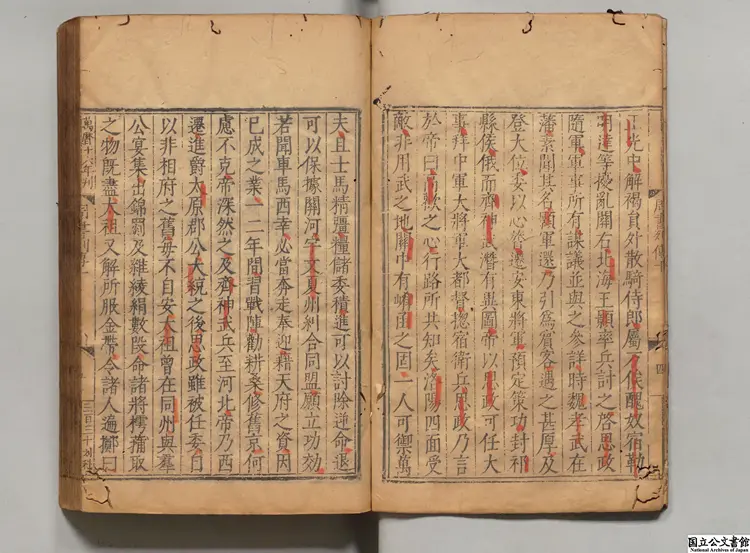 正光中解褐員外散騎侍郎屬万俟醜奴宿勤
明達等擾亂關右北海王顥率兵討之啓思政
隨軍軍事所有謀議並與之參詳時魏孝武在
藩素聞其名顥軍還乃引爲賓客遇之甚厚及
登大位委以心膂遷安東將軍預定策功封祁
縣侯俄而齊神武潛有異圖帝以思政可任大
事拜中軍大將軍大都督揔宿衛兵思政乃言
於帝曰高歡之心行路所共知矣洛陽四面受
敵非用武之地關中有崤函之固一人可禦萬
夫且士馬精彊糧儲委積進可以討除逆命退
可以保據關河宇文夏州糾合同盟願立功効
若聞車馬西幸必當奔走奉迎藉天府之資因
已成之業一二年間習戰陣勸耕桑修舊京何
慮不克帝深然之及齊神武兵至河北帝乃西
遷進爵太原郡公大統之後思政雖被任委自
以非相府之舊每不自安太祖曾在同州與羣
公宴集出錦罽及雜綾絹數段命諸將樗蒱取
之物既盡太祖又解所服金帶令諸人遍擲曰
萬曆十六年刊
三百三十
国立公文書館
National Archives of Japan